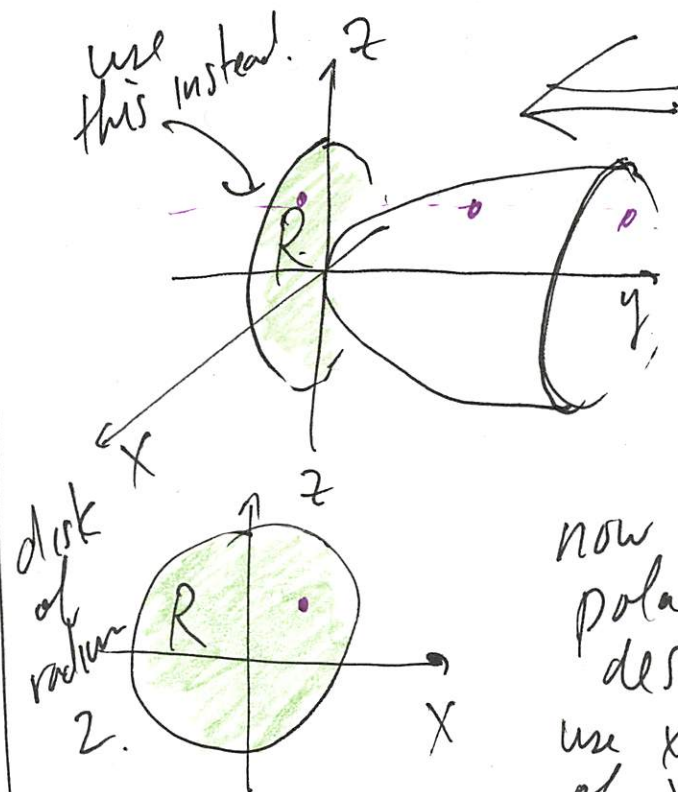 use
this instead.
z
R
y
x
z
disk
of
radius
2.
R
x
now
pola
des
use x
of